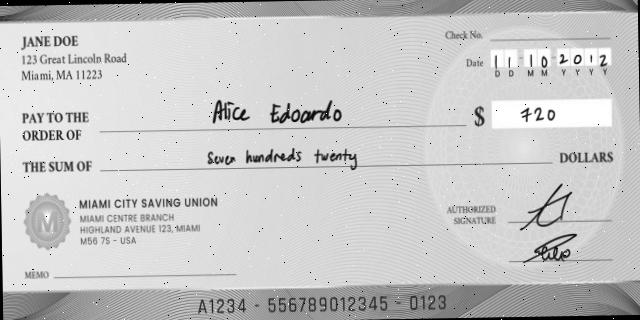 JANE DOE
123 Great Lincoln Road
Miami, MA 11223
Check No.
Date 11 10 2012
D D M M Y Y Y Y
PAY TO THE
ORDER OF Alice Edoardo $ 720
THE SUM OF Seven hundreds twenty DOLLARS
MIAMI CITY SAVING UNION
MIAMI CENTRE BRANCH
HIGHLAND AVENUE 123, MIAMI
M56 7S - USA
M
AUTHORIZED
SIGNATURE
MEMO
A1234 - 556789012345 - 0123